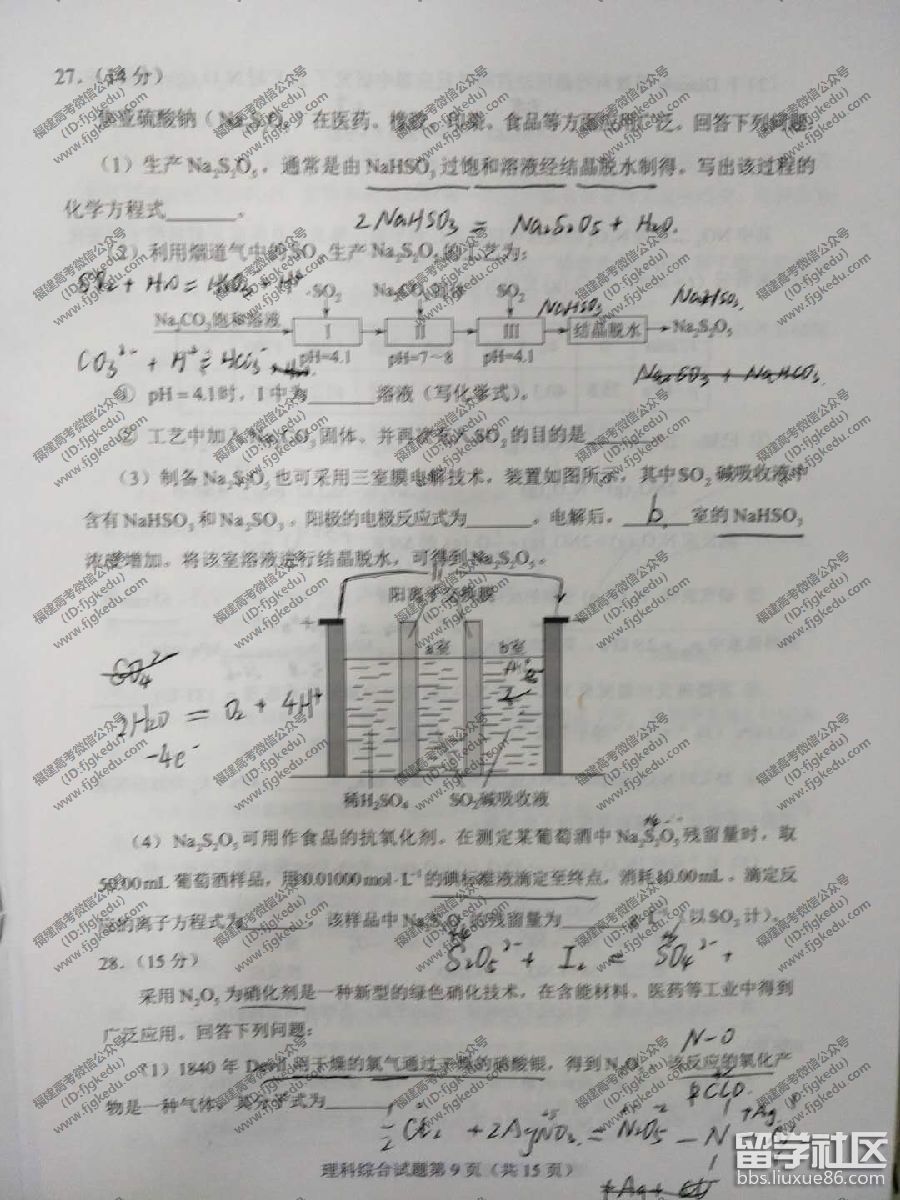 27.（14 分）
焦亚硫酸钠（Na₂S₂O₅）在医药、橡胶、印染、食品等方面应用广泛。回答下列问题：
（1）生产 Na₂S₂O₅，通常是由 NaHSO₃ 过饱和溶液经结晶脱水制得。写出该过程的
化学方程式______。
2NaHSO₃ = Na₂S₂O₅ + H₂O.
（2）利用烟道气中的 SO₂ 生产 Na₂S₂O₅ 的工艺为：
SO₂ Na₂CO₃固体 SO₂ NaHSO₃ NaHSO₃
Na₂CO₃饱和溶液 I II III 结晶脱水 Na₂S₂O₅
pH=4.1 pH=7~8 pH=4.1
CO₃²⁻ + H⁺ = HCO₃⁻
Na₂SO₃ + NaHCO₃
① pH = 4.1时，I 中为______溶液（写化学式）。
② 工艺中加入 Na₂CO₃ 固体、并再次充入 SO₂ 的目的是______。
（3）制备 Na₂S₂O₅ 也可采用三室膜电解技术，装置如图所示，其中 SO₂ 碱吸收液中
含有 NaHSO₃ 和 Na₂SO₃。阳极的电极反应式为______。电解后，b 室的 NaHSO₃
浓度增加。将该室溶液进行结晶脱水，可得到 Na₂S₂O₅。
阳离子交换膜
a室 b室
SO₄²⁻
2H₂O = O₂ + 4H⁺
-4e⁻
稀H₂SO₄ SO₂碱吸收液
（4）Na₂S₂O₅ 可用作食品的抗氧化剂。在测定某葡萄酒中 Na₂S₂O₅ 残留量时，取
50.00 mL 葡萄酒样品，用 0.01000 mol·L⁻¹ 的碘标准液滴定至终点，消耗 10.00 mL。滴定反
应的离子方程式为______，该样品中 Na₂S₂O₅ 的残留量为______g·L⁻¹（以 SO₂ 计）。
S₂O₅²⁻ + I₂ = SO₄²⁻ +
28.（15 分）
采用 N₂O₅ 为硝化剂是一种新型的绿色硝化技术，在含能材料、医药等工业中得到
广泛应用。回答下列问题：
N-O
（1）1840 年 Devil 用干燥的氯气通过干燥的硝酸银，得到 N₂O₅。该反应的氧化产
物是一种气体，其分子式为______。
Cl₂ + 2AgNO₃ = N₂O₅
理科综合试题第 9 页（共 15 页）
福建高考微信公众号
(ID:fjgkedu)
www.fjgkedu.com
留学社区
bbs.liuxue86.com